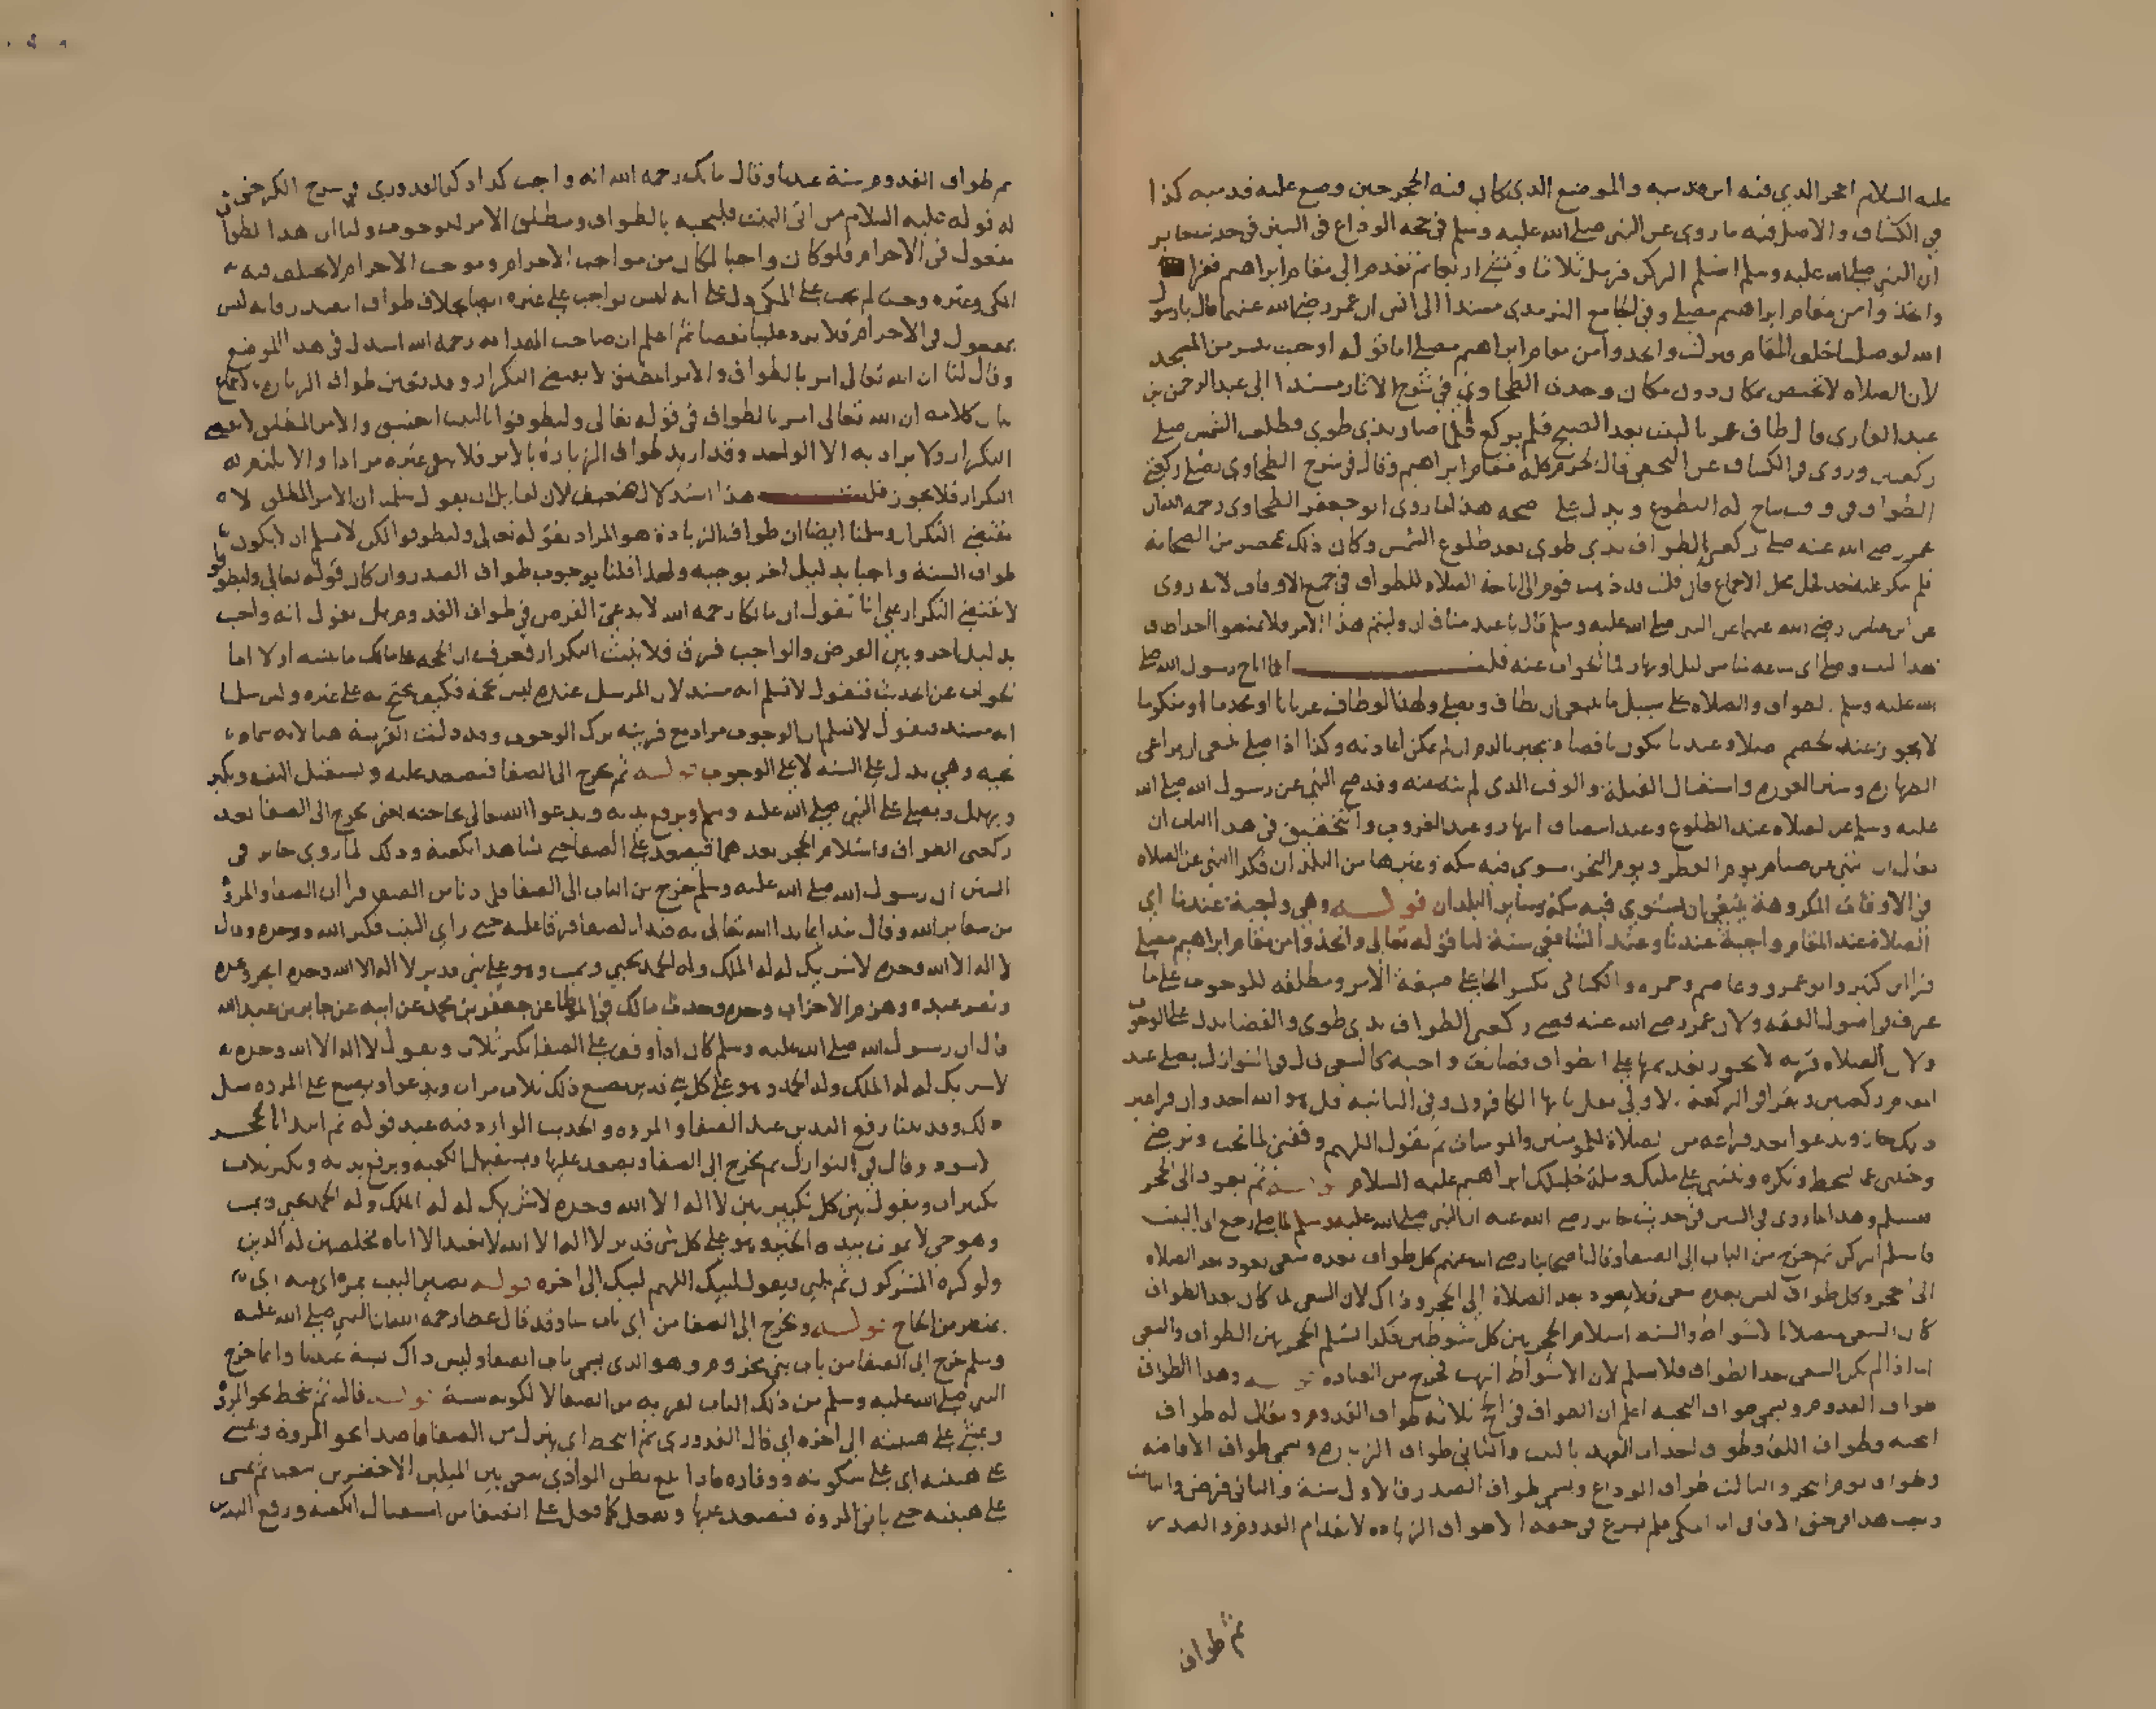 عليه السلام الحجر الذي فيه اثر قدميه والموضع الذي كان فيه الحجر حين وضع عليه قدميه كذا
في الكشاف والاصل فيه ما روى عن النبي صلى الله عليه وسلم في حجة الوداع في السنن في حديث جابر
ان النبي صلى الله عليه وسلم استلم الركن فرمل ثلاثا ومشى اربعا ثم تقدم الى مقام ابراهيم فقرا
واتخذوا من مقام ابراهيم مصلى وفي الجامع الترمذي مسندا الى انس ان عمر رضي الله عنهما قال يا رسول
الله لو صلينا خلف المقام فنزلت واتخذوا من مقام ابراهيم مصلى
لان الصلاة لا تختص بمكان دون مكان وحدث الطحاوي في شرح الاثار مسندا الى عبد الرحمن بن
عبد القاري قال طاف عمر بالبيت بعد الصبح فلم يركع فلما صار بذي طوى وطلعت الشمس صلى
ركعتين وروى في الكشاف عن النخعي قال الحرم كله مقام ابراهيم وقال في شرح الطحاوي يصلي ركعتي
الطواف في وقت يباح له التطوع ويدل على صحة هذا ما روى ابو جعفر الطحاوي رحمه الله ان
عمر رضي الله عنه صلى ركعتي الطواف بذي طوى بعد طلوع الشمس وكان ذلك بمحضر من الصحابة
فلم ينكر عليه احد فحل محل الاجماع فان قلت قد ذهب قوم الى اباحة الصلاة للطواف في جميع الاوقات لانه روى
عن ابن عباس رضي الله عنهما عن النبي صلى الله عليه وسلم قال يا عبد مناف ان وليتم هذا الامر فلا تمنعوا احدا طاف
بهذا البيت وصلى اي ساعة شاء من ليل او نهار فما الجواب عنه قلت انما اباح رسول الله صلى
الله عليه وسلم الطواف والصلاة على سبيل ما ينبغي ان يطاف ويصلى ولهذا لو طاف عريانا او محدثا او منكوسا
لا يجوز عند الخصم اصلا وعندنا يكون ناقصا ويجبر بالدم ان لم يمكن اعادته وكذا اذا صلى ينبغي ان يراعى
الطهارة وستر العورة واستقبال القبلة والوقت الذي لم ينه عنه وقد صح النهي عن رسول الله صلى الله
عليه وسلم عن الصلاة عند الطلوع وعند انتصاف النهار وعند الغروب والتحقيق في هذا الباب ان
يقال ان النهي عن صيام يوم الفطر ويوم النحر يستوي فيه مكة وغيرها من البلدان فكذا النهي عن الصلاة
في الاوقات المكروهة ينبغي ان يستوي فيه مكة وسائر البلدان قوله وهي واجبة عندنا اي
الصلاة عند المقام واجبة عندنا وعند الشافعي سنة لنا قوله تعالى واتخذوا من مقام ابراهيم مصلى
قرا ابن كثير وابو عمرو وعاصم وحمزة والكسائي بكسر الخاء على صيغة الامر ومطلقه للوجوب على ما
عرف في اصول الفقه ولان عمر رضي الله عنه قضى ركعتي الطواف بذي طوى والقضاء يدل على الوجوب
ولان الصلاة قربة لا يجوز تقديمها على الطواف فصارت واجبة كالسعي قال في النوازل يصلي عند
المقام ركعتين ويقرا في الركعة الاولى بقل يا ايها الكافرون وفي الثانية قل هو الله احد وان قرا غير
ذلك جاز ويدعو بعد فراغه من الصلاة للمؤمنين والمومنات ثم يقول اللهم وفقني لما تحب وترضى
وجنبني عما تسخط وتكره وثبتني على ملتك وملة خليلك ابراهيم عليه السلام قوله ثم يعود الى الحجر
فيستلم وهذا لما روى في السنن في حديث جابر رضي الله عنه ان النبي صلى الله عليه وسلم لما صلى رجع الى البيت
فاستلم الركن ثم خرج من الباب الى الصفا وقال اصحابنا رضي الله عنهم كل طواف بعده سعي يعود بعد الصلاة
الى الحجر وكل طواف ليس بعده سعي فلا يعود بعد الصلاة الى الحجر وذاك لان السعي لما كان بعد الطواف
كان السعي متصلا بالاشواط والسنة استلام الحجر بين كل شوطين فكذا استلم الحجر بين الطواف والسعي
اما اذا لم يكن السعي بعد الطواف فلا يستلم لان الاشواط انتهت فخرج من العبادة قوله وهذا الطواف
طواف القدوم ويسمى طواف التحية اعلم ان الطواف في الحج ثلاثة طواف القدوم ويقال له طواف
التحية وطواف اللقاء وطواف احداث العهد بالبيت والثاني طواف الزيارة ويسمى طواف الافاضة
وطواف يوم النحر والثالث طواف الوداع ويسمى طواف الصدر فالاول سنة والثاني فرض والثالث
واجب هذا في حق الافاقي اما المكي فلم يشرع في حقه الا طواف الزيارة لانعدام القدوم والصدر
ثم طواف
ثم طواف القدوم سنة عندنا وقال مالك رحمه الله انه واجب كذا ذكر القدوري في شرح الكرخي
له قوله عليه السلام من اتى البيت فليحيه بالطواف ومطلق الامر للوجوب ولنا ان هذا الطواف
مفعول في الاحرام فلو كان واجبا لكان من مواجب الاحرام وموجب الاحرام لا يختلف فيه
المكي وغيره وحيث لم يجب على المكي دل على انه ليس بواجب على غيره ايضا بخلاف طواف الصدر فانه ليس
بمفعول في الاحرام فلا يرد علينا نقضا ثم اعلم ان صاحب الهداية رحمه الله استدل في هذا الموضع
وقال لنا ان الله تعالى امر بالطواف والامر المطلق لا يقتضي التكرار وقد تعين طواف الزيارة بالاجماع
بيان كلامه ان الله تعالى امر بالطواف في قوله تعالى وليطوفوا بالبيت العتيق والامر المطلق لا يقتضي
التكرار ولا يراد به الا الواحد وقد اريد طواف الزيارة بالامر فلا يبقى غيره مرادا والا يلزم له
التكرار فلا يجوز قلت هذا استدلال ضعيف لان لقائل ان يقول سلمنا ان الامر المطلق لا
يقتضي التكرار وسلمنا ايضا ان طواف الزيارة هو المراد بقوله تعالى وليطوفوا لكن لا نسلم ان لا يكون
طواف السنة واجبا بدليل اخر يوجبه ولهذا قلنا بوجوب طواف الصدر وان كان قوله تعالى وليطوفوا
لا يقتضي التكرار على انا نقول ان مالكا رحمه الله لا يدعي الفرض في طواف القدوم بل يقول انه واجب
بدليل اخر وبين الفرض والواجب فرق فلا يثبت التكرار
الجواب عن الحديث فنقول لا نسلم انه مسند لان المرسل عندهم ليس بحجة فكيف يحتج به على غيره ولئن سلمنا
انه مسند فنقول لا نسلم ان الوجوب مراد مع قرينة ترك الوجوب وقد دلت القرينة هنا لانه سماه
تحية وهي تدل على السنة لا على الوجوب قوله ثم يخرج الى الصفا فيصعد عليه ويستقبل البيت ويكبر
ويهلل ويصلي على النبي صلى الله عليه وسلم ويرفع يديه ويدعو الله تعالى بحاجته يعني يخرج الى الصفا بعد
ركعتي الطواف واستلام الحجر بعدهما فيصعد على الصفا حتى يشاهد الكعبة وذلك لما روى جابر في
السنن ان رسول الله صلى الله عليه وسلم خرج من الباب الى الصفا فلما دنا من الصفا قرا ان الصفا والمروة
من شعائر الله وقال نبدا بما بدا الله تعالى به فبدا بالصفا فرقا عليه حتى راى البيت فكبر الله ووحده وقال
لا اله الا الله وحده لا شريك له له الملك وله الحمد يحيي ويميت وهو على كل شي قدير لا اله الا الله وحده انجز وعده
ونصر عبده وهزم الاحزاب وحده وحدث مالك في الموطا عن جعفر بن محمد عن ابيه عن جابر بن عبد الله
قال ان رسول الله صلى الله عليه وسلم كان اذا وقف على الصفا يكبر ثلاثا ويقول لا اله الا الله وحده
لا شريك له له الملك وله الحمد وهو على كل شي قدير يصنع ذلك ثلاث مرات ويدعو ويصنع على المروة مثل
ذلك وقد بينا رفع اليدين عند الصفا والمروة والحديث الوارد فيه عند قوله ثم ابتدا بالحجر
الاسود وقال في النوازل ثم يخرج الى الصفا ويصعد عليها ويستقبل الكعبة ويرفع يديه ويكبر ثلاث
تكبيرات ويقول بين كل تكبيرتين لا اله الا الله وحده لا شريك له له الملك وله الحمد يحيي ويميت
وهو حي لا يموت بيده الخير وهو على كل شي قدير لا اله الا الله لا نعبد الا اياه مخلصين له الدين
ولو كره المشركون ثم يلبي ويقول لبيك اللهم لبيك الى اخره قوله يصير البيت بمراى منه اي
بمنظر من الحاج قوله ويخرج الى الصفا من اي باب شاء وقد قال اصحابنا رحمهم الله ان النبي صلى الله عليه
وسلم خرج الى الصفا من باب بني مخزوم وهو الذي يسمى باب الصفا وليس ذاك سنة عندنا وانما خرج
النبي صلى الله عليه وسلم من ذلك الباب لقربه من الصفا لا لكونه سنة قوله قال ثم ينحط نحو المروة
ويمشي على هينته الى اخره اي قال القدوري ثم ينحط اي ينزل من الصفا قاصدا نحو المروة ويمشي
على هينته اي على سكونه ووقاره فاذا بلغ بطن الوادي سعى بين الميلين الاخضرين سعيا ثم يمشي
على هينته حتى ياتي المروة فيصعد عليها ويفعل كما فعل على الصفا من استقبال الكعبة ورفع اليدين